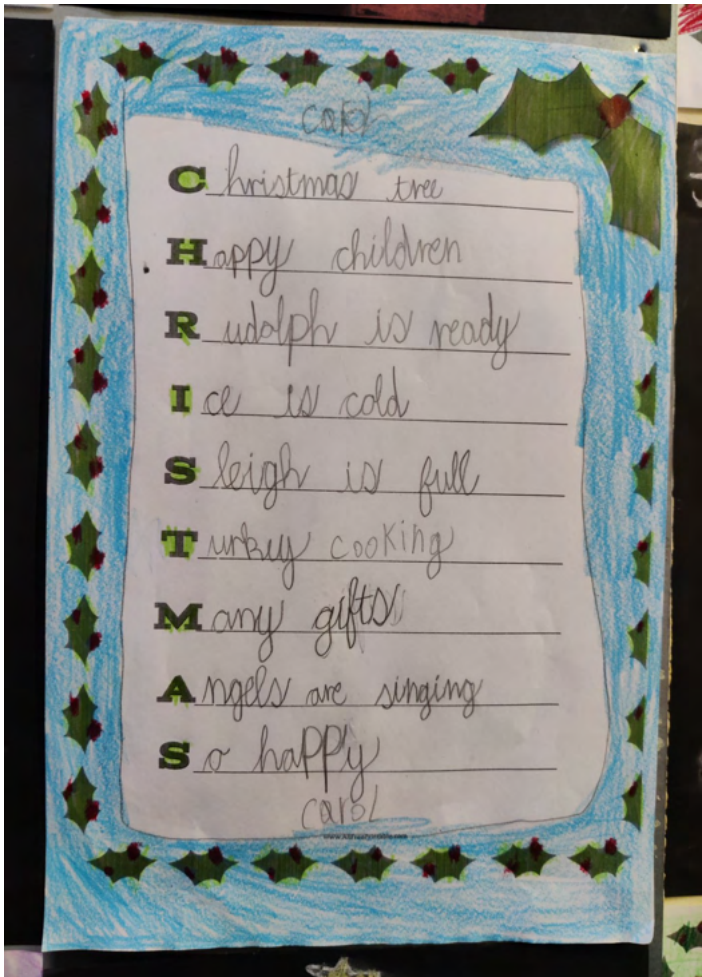 carol
Christmas tree
Happy children
Rudolph is ready
Ice is cold
Sleigh is full
Turkey cooking
Many gifts
Angels are singing
So happy
carol